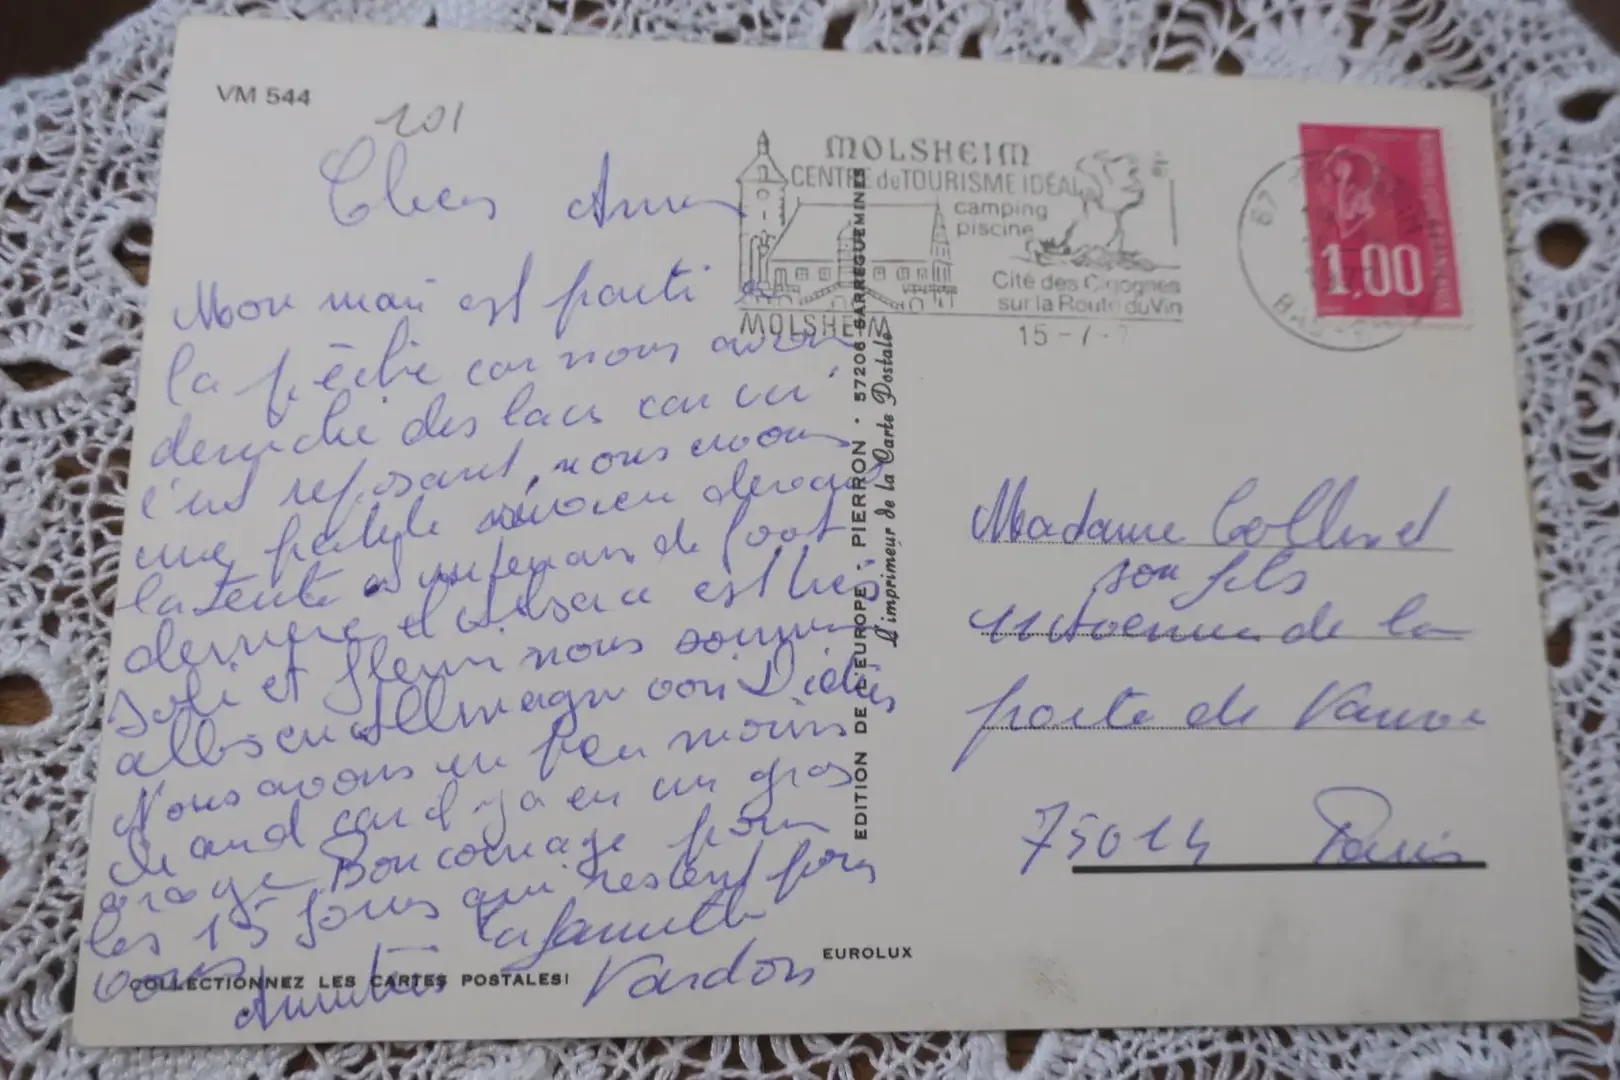 VM 544
101
Chers Amis
Mon mari est parti à
la pêche car nous avons
deniché des lacs car ici
c'est reposant, nous avons
une petite rivière devant
la tente et un terrain de foot
derriere et l'Alsace est très
joli et fleuri nous sommes
allés en Allemagne voir Didier
Nous avons un peu moins
chaud car il y a eu un gros
orage Bon courage pour
les 15 jours qui restent pour
vous
La famille
Amitiés Vardon
COLLECTIONNEZ LES CARTES POSTALES!
EUROLUX
EDITION DE L'EUROPE - PIERRON · 57206 SARREGUEMINES
L'imprimeur de la Carte Postale
MOLSHEIM
CENTRE du TOURISME IDÉAL
camping
piscine
Cité des Cigognes
sur la Route du Vin
MOLSHEIM
15 - 7 -
67
1,00
Madame Collinet
son fils
11 Avenue de la
porte de Vanve
75014 Paris